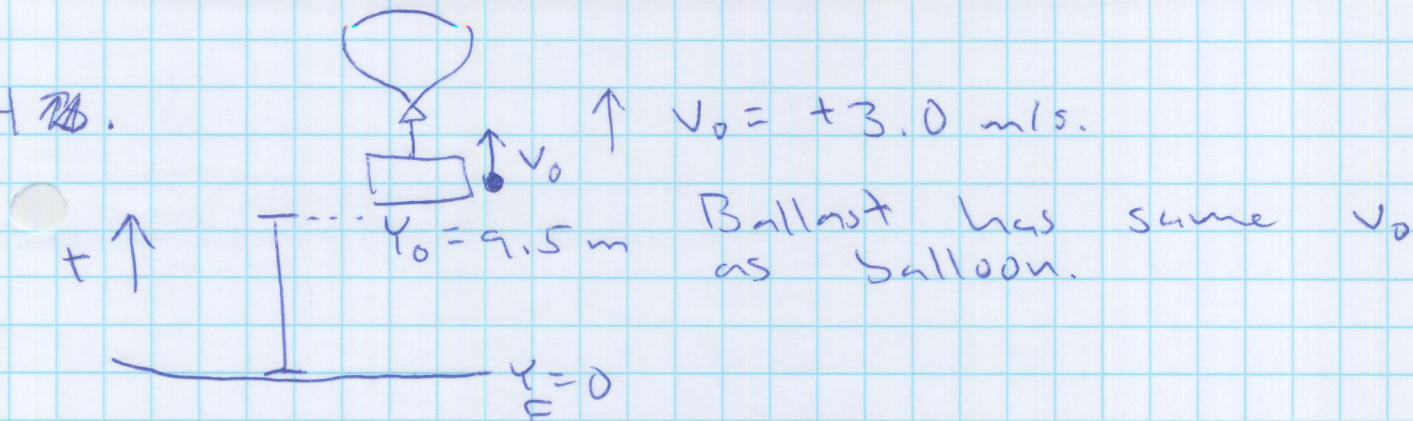 V₀ = +3.0 m/s.
V₀
Y₀ = 9.5 m
Ballast has same V₀
as balloon.
+
Y = 0